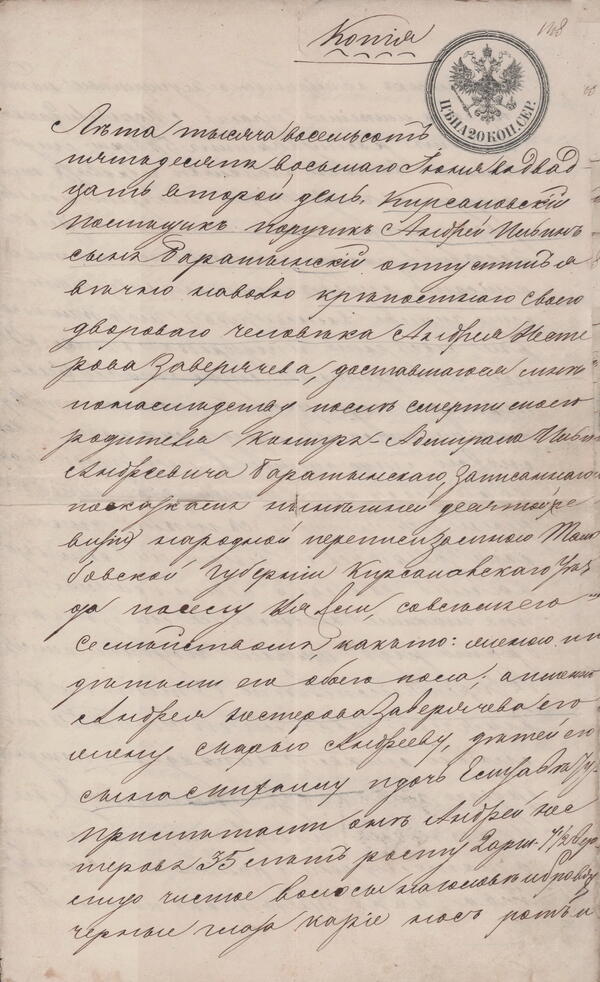 Копія
148
ЦѢНА 20 КОП. СЕР.
Лѣта тысяча восемьсотъ
пятьдесятъ восьмаго Іюня въ двад
цать второй день, Кирсановскій
помѣщикъ поручикъ Андрей Ильинъ
сынъ Баратынскій отпустилъ я
вѣчно на волю крѣпостнаго своего
двороваго человѣка Андрея Несте
рова Заверячева, доставшагося мнѣ
по наслѣдству послѣ смерти моего
родителя Контръ-Адмирала Ильи
Андреевича Баратынскаго, записаннаго
по сказкамъ нынѣшней десятой ре
визіи народной переписи за мною Там
бовской губерніи Кирсановскаго Уѣз
да по селу, со всѣмъ его
семействомъ, какъ то: женою и
дѣтьми его обоего пола; а именно
Андрея Нестерова Заверячева его
жену Марью Андрееву, дѣтей его
сына и дочь Елисавету
примѣтами онъ Андрей Нес
теровъ 35 лѣтъ росту 2 арш. 4 1/2 вер
лицо чистое волосы на головѣ и бровяхъ
черные глаза каріе носъ ротъ и